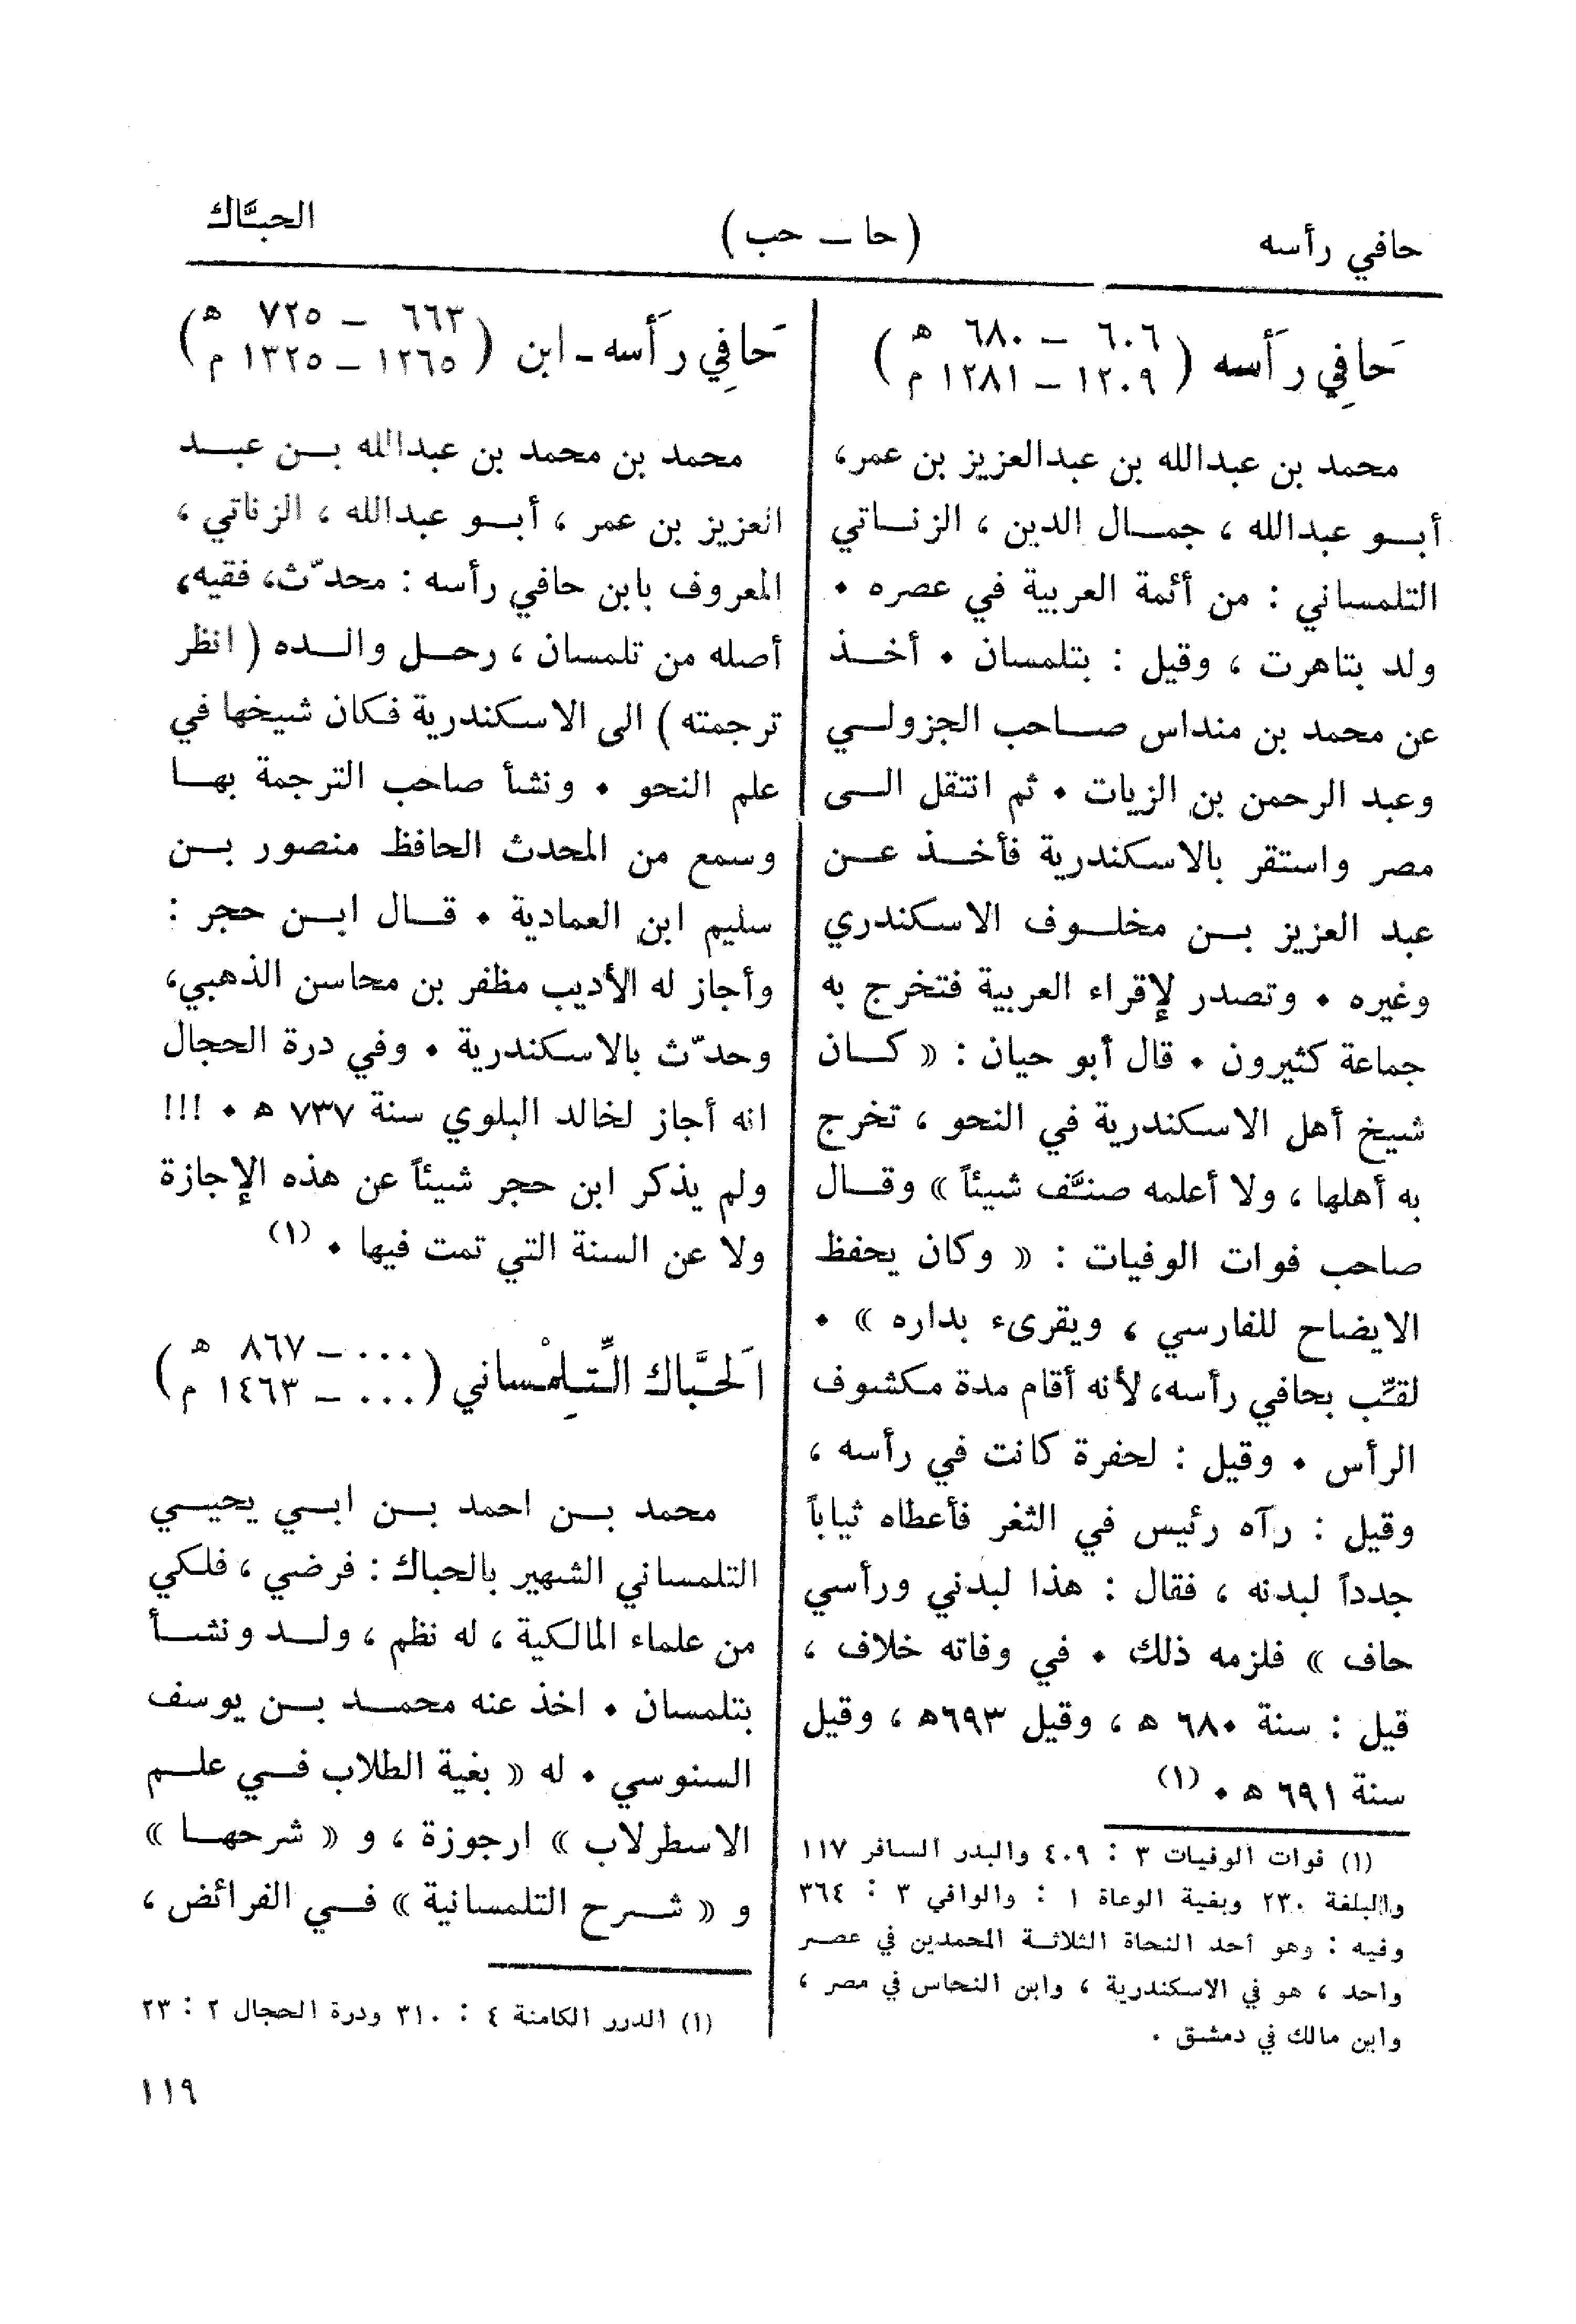 حافي رأسه
(حا — حب)
الحبَّاك
حَافِي رَأسه (٦٠٦ — ٦٨٠ هـ
١٢٠٩ — ١٢٨١ م)
محمد بن عبدالله بن عبدالعزيز بن عمر،
أبو عبدالله ، جمال الدين ، الزناتي
التلمساني : من أئمة العربية في عصره ٠
ولد بتاهرت ، وقيل : بتلمسان ٠ أخذ
عن محمد بن منداس صاحب الجزولي
وعبد الرحمن بن الزيات ٠ ثم انتقل الى
مصر واستقر بالاسكندرية فأخذ عن
عبد العزيز بن مخلوف الاسكندري
وغيره ٠ وتصدر لإقراء العربية فتخرج به
جماعة كثيرون ٠ قال أبو حيان : « كان
شيخ أهل الاسكندرية في النحو ، تخرج
به أهلها ، ولا أعلمه صنَّف شيئاً » وقال
صاحب فوات الوفيات : « وكان يحفظ
الايضاح للفارسي ، ويقرىء بداره » ٠
لقتّب بحافي رأسه، لأنه أقام مدة مكشوف
الرأس ٠ وقيل : لحفرة كانت في رأسه ،
وقيل : رآه رئيس في الثغر فأعطاه ثياباً
جدداً لبدنه ، فقال : هذا لبدني ورأسي
حاف » فلزمه ذلك ٠ في وفاته خلاف ،
قيل : سنة ٦٨٠ هـ ، وقيل ٦٩٣هـ ، وقيل
سنة ٦٩١ هـ ٠ (١)
(١) فوات الوفيات ٣ : ٤٠٩ والبدر السافر ١١٧
والبلغة ٢٣٠ وبغية الوعاة ١ : والوافي ٣ : ٣٦٤
وفيه : وهو أحد النحاة الثلاثة المحمدين في عصر
واحد ، هو في الاسكندرية ، وابن النحاس في مصر ،
وابن مالك في دمشق .
حَافِي رَأسه - ابن (٦٦٣ — ٧٢٥ هـ
١٢٦٥ — ١٣٢٥ م)
محمد بن محمد بن عبدالله بن عبد
العزيز بن عمر ، أبو عبدالله ، الزناتي ،
المعروف بابن حافي رأسه : محدّث، فقيه،
أصله من تلمسان ، رحل والده ( انظر
ترجمته ) الى الاسكندرية فكان شيخها في
علم النحو ٠ ونشأ صاحب الترجمة بها
وسمع من المحدث الحافظ منصور بن
سليم ابن العمادية ٠ قال ابن حجر :
وأجاز له الأديب مظفر بن محاسن الذهبي،
وحدّث بالاسكندرية ٠ وفي درة الحجال
انه أجاز لخالد البلوي سنة ٧٣٧ هـ ٠ !!!
ولم يذكر ابن حجر شيئاً عن هذه الإجازة
ولا عن السنة التي تمت فيها ٠ (١)
الحَبَّاك التِّلِمْساني (٠٠٠ — ٨٦٧ هـ
٠٠٠ — ١٤٦٣ م)
محمد بن احمد بن ابي يحيي
التلمساني الشهير بالحباك : فرضي ، فلكي
من علماء المالكية ، له نظم ، ولد ونشأ
بتلمسان ٠ اخذ عنه محمد بن يوسف
السنوسي ٠ له « بغية الطلاب في علم
الاسطرلاب » ارجوزة ، و « شرحها »
و « شرح التلمسانية » في الفرائض ،
(١) الدرر الكامنة ٤ : ٣١٠ ودرة الحجال ٢ : ٢٣
١١٩